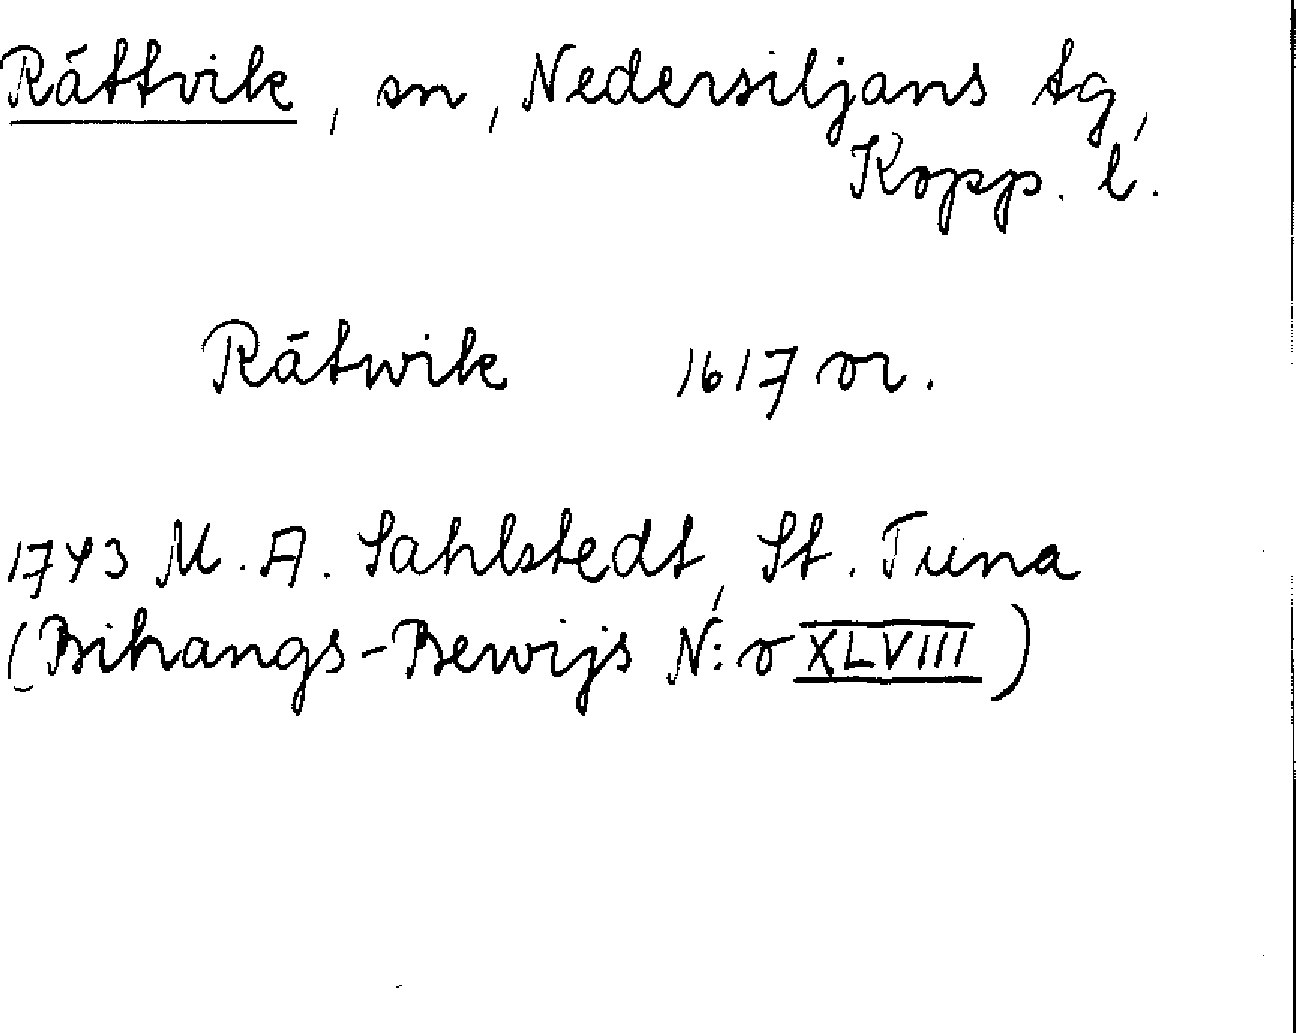 Rättvik, sn, Nedersiljans tg,
Kopp. l.
Rätwik 1617 or.
1743 M. A. Sahlstedt, St. Tuna
(Bihangs-Bewijs N:o XLVIII)